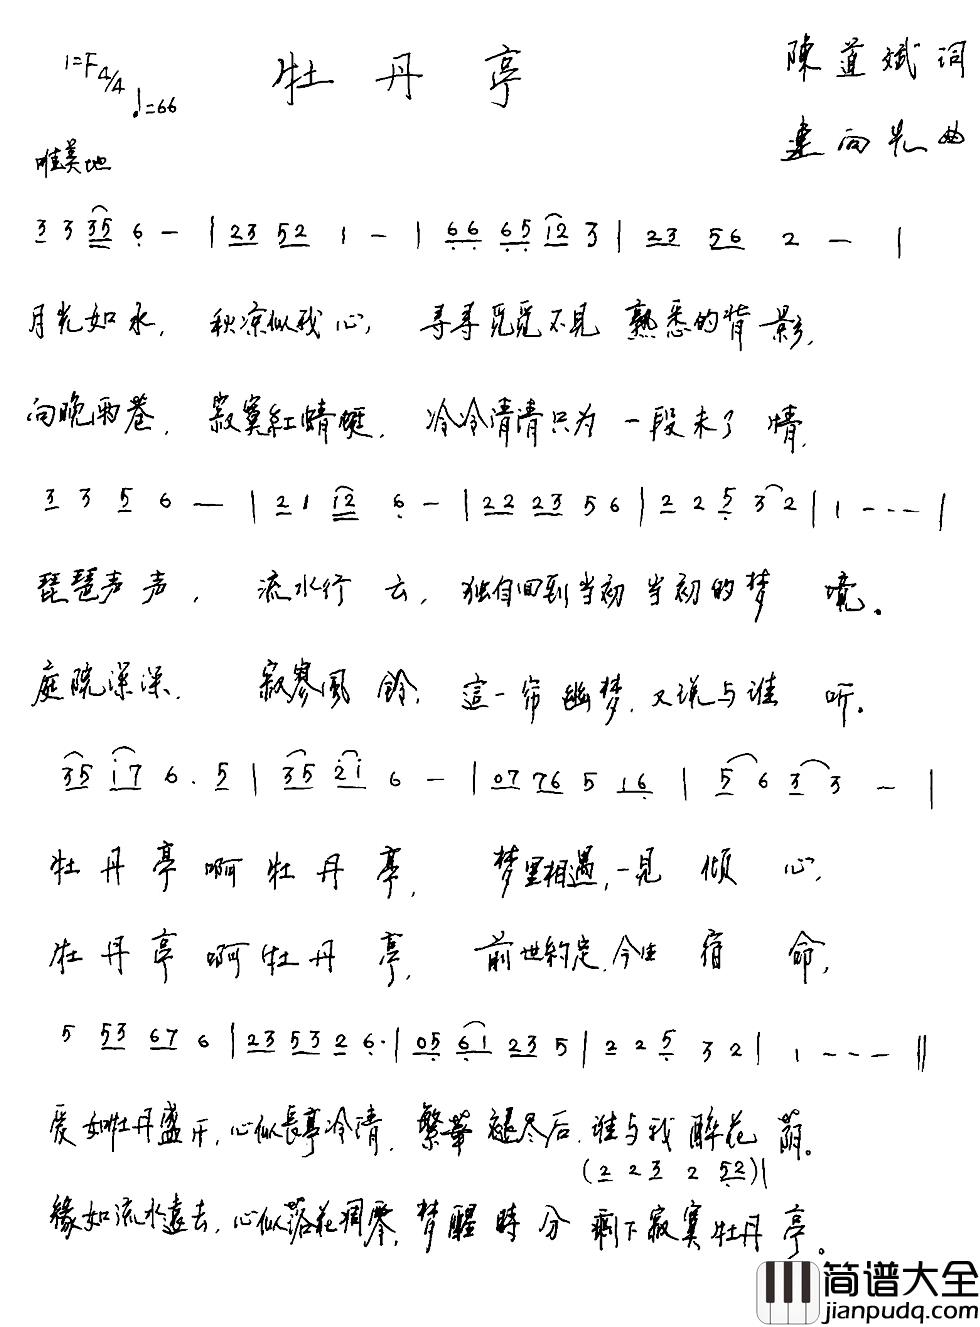 1=F 4/4
♩=66
牡丹亭
陳道斌词
孟向光曲
唯美地
3 3 35 6 - | 23 52 1 - | 66 65 12 3 | 23 56 2 - |
月光如水, 秋凉似我心, 寻寻觅觅不见 熟悉的背影,
向晚雨巷, 寂寞紅蜻蜓, 冷冷清清只为 一段未了情,
3 3 5 6 - | 21 12 6 - | 22 23 56 | 2 2 5 3 2 | 1 --- |
琵琶声声, 流水行云, 独自回到当初 当初的梦境。
庭院深深, 寂寥風鈴, 這一帘幽梦, 又说与谁听。
35 i7 6. 5 | 35 2i 6 - | 07 76 5 16 | 5 6 3 3 - |
牡丹亭啊牡丹亭, 梦里相遇,一见倾心,
牡丹亭啊牡丹亭, 前世約定,今生宿命,
5 53 67 6 | 23 53 2 6. | 05 61 23 5 | 2 2 5 3 2 | 1 --- ||
爱如牡丹盛开,心似長亭冷清, 繁華褪尽后,谁与我醉花荫。
(2 2 3 2 52)|
緣如流水遠去,心似落花凋零,梦醒時分 剩下寂寞牡丹亭。
简谱大全
jianpudq.com